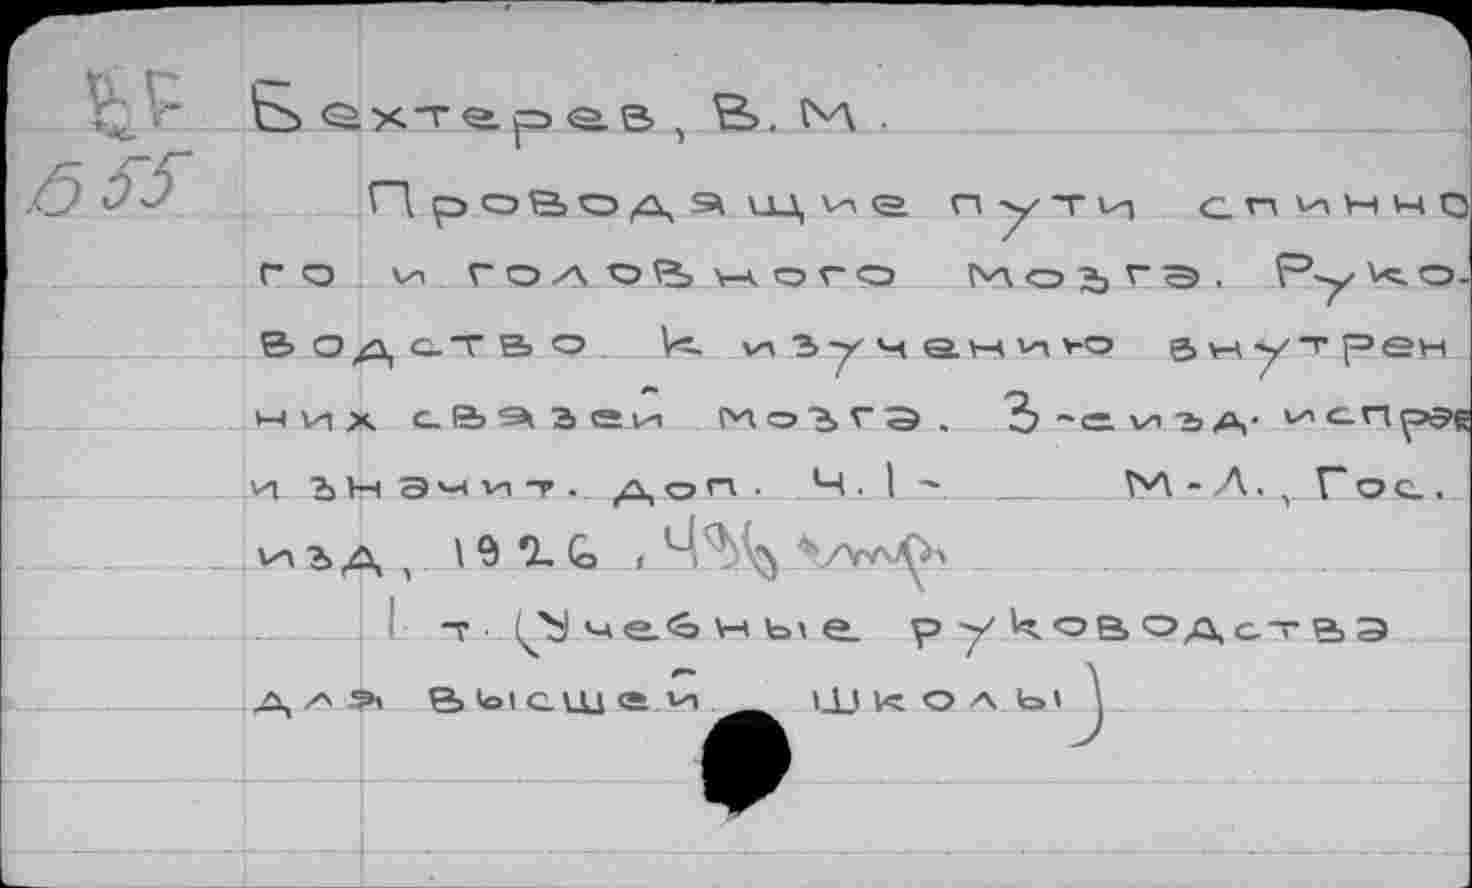 Бехтерев, В. М.
Б55
Проводящие пути спинно
го и головного мозга. Руко-
водство к изучению внутрен
них связей мозга. 3-е изд. исправ
и значит. доп. Ч. 1- М-Л., Гос.
изд, 1926,
1 т. (Учебные руководства
для высшей школы)